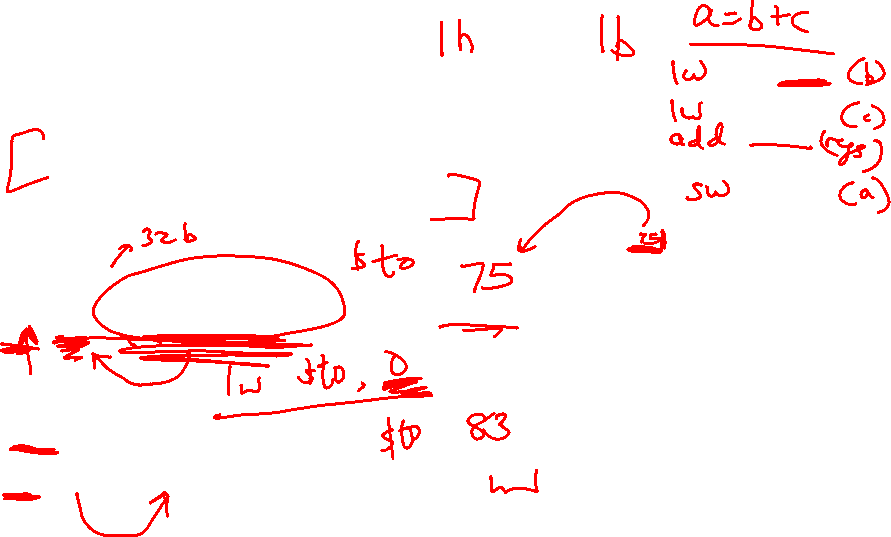 lh lb a=b+c
lw (b)
lw (c)
add (regs)
sw (a)
32b
$t0 75
lw $t0, 0
$t0 83